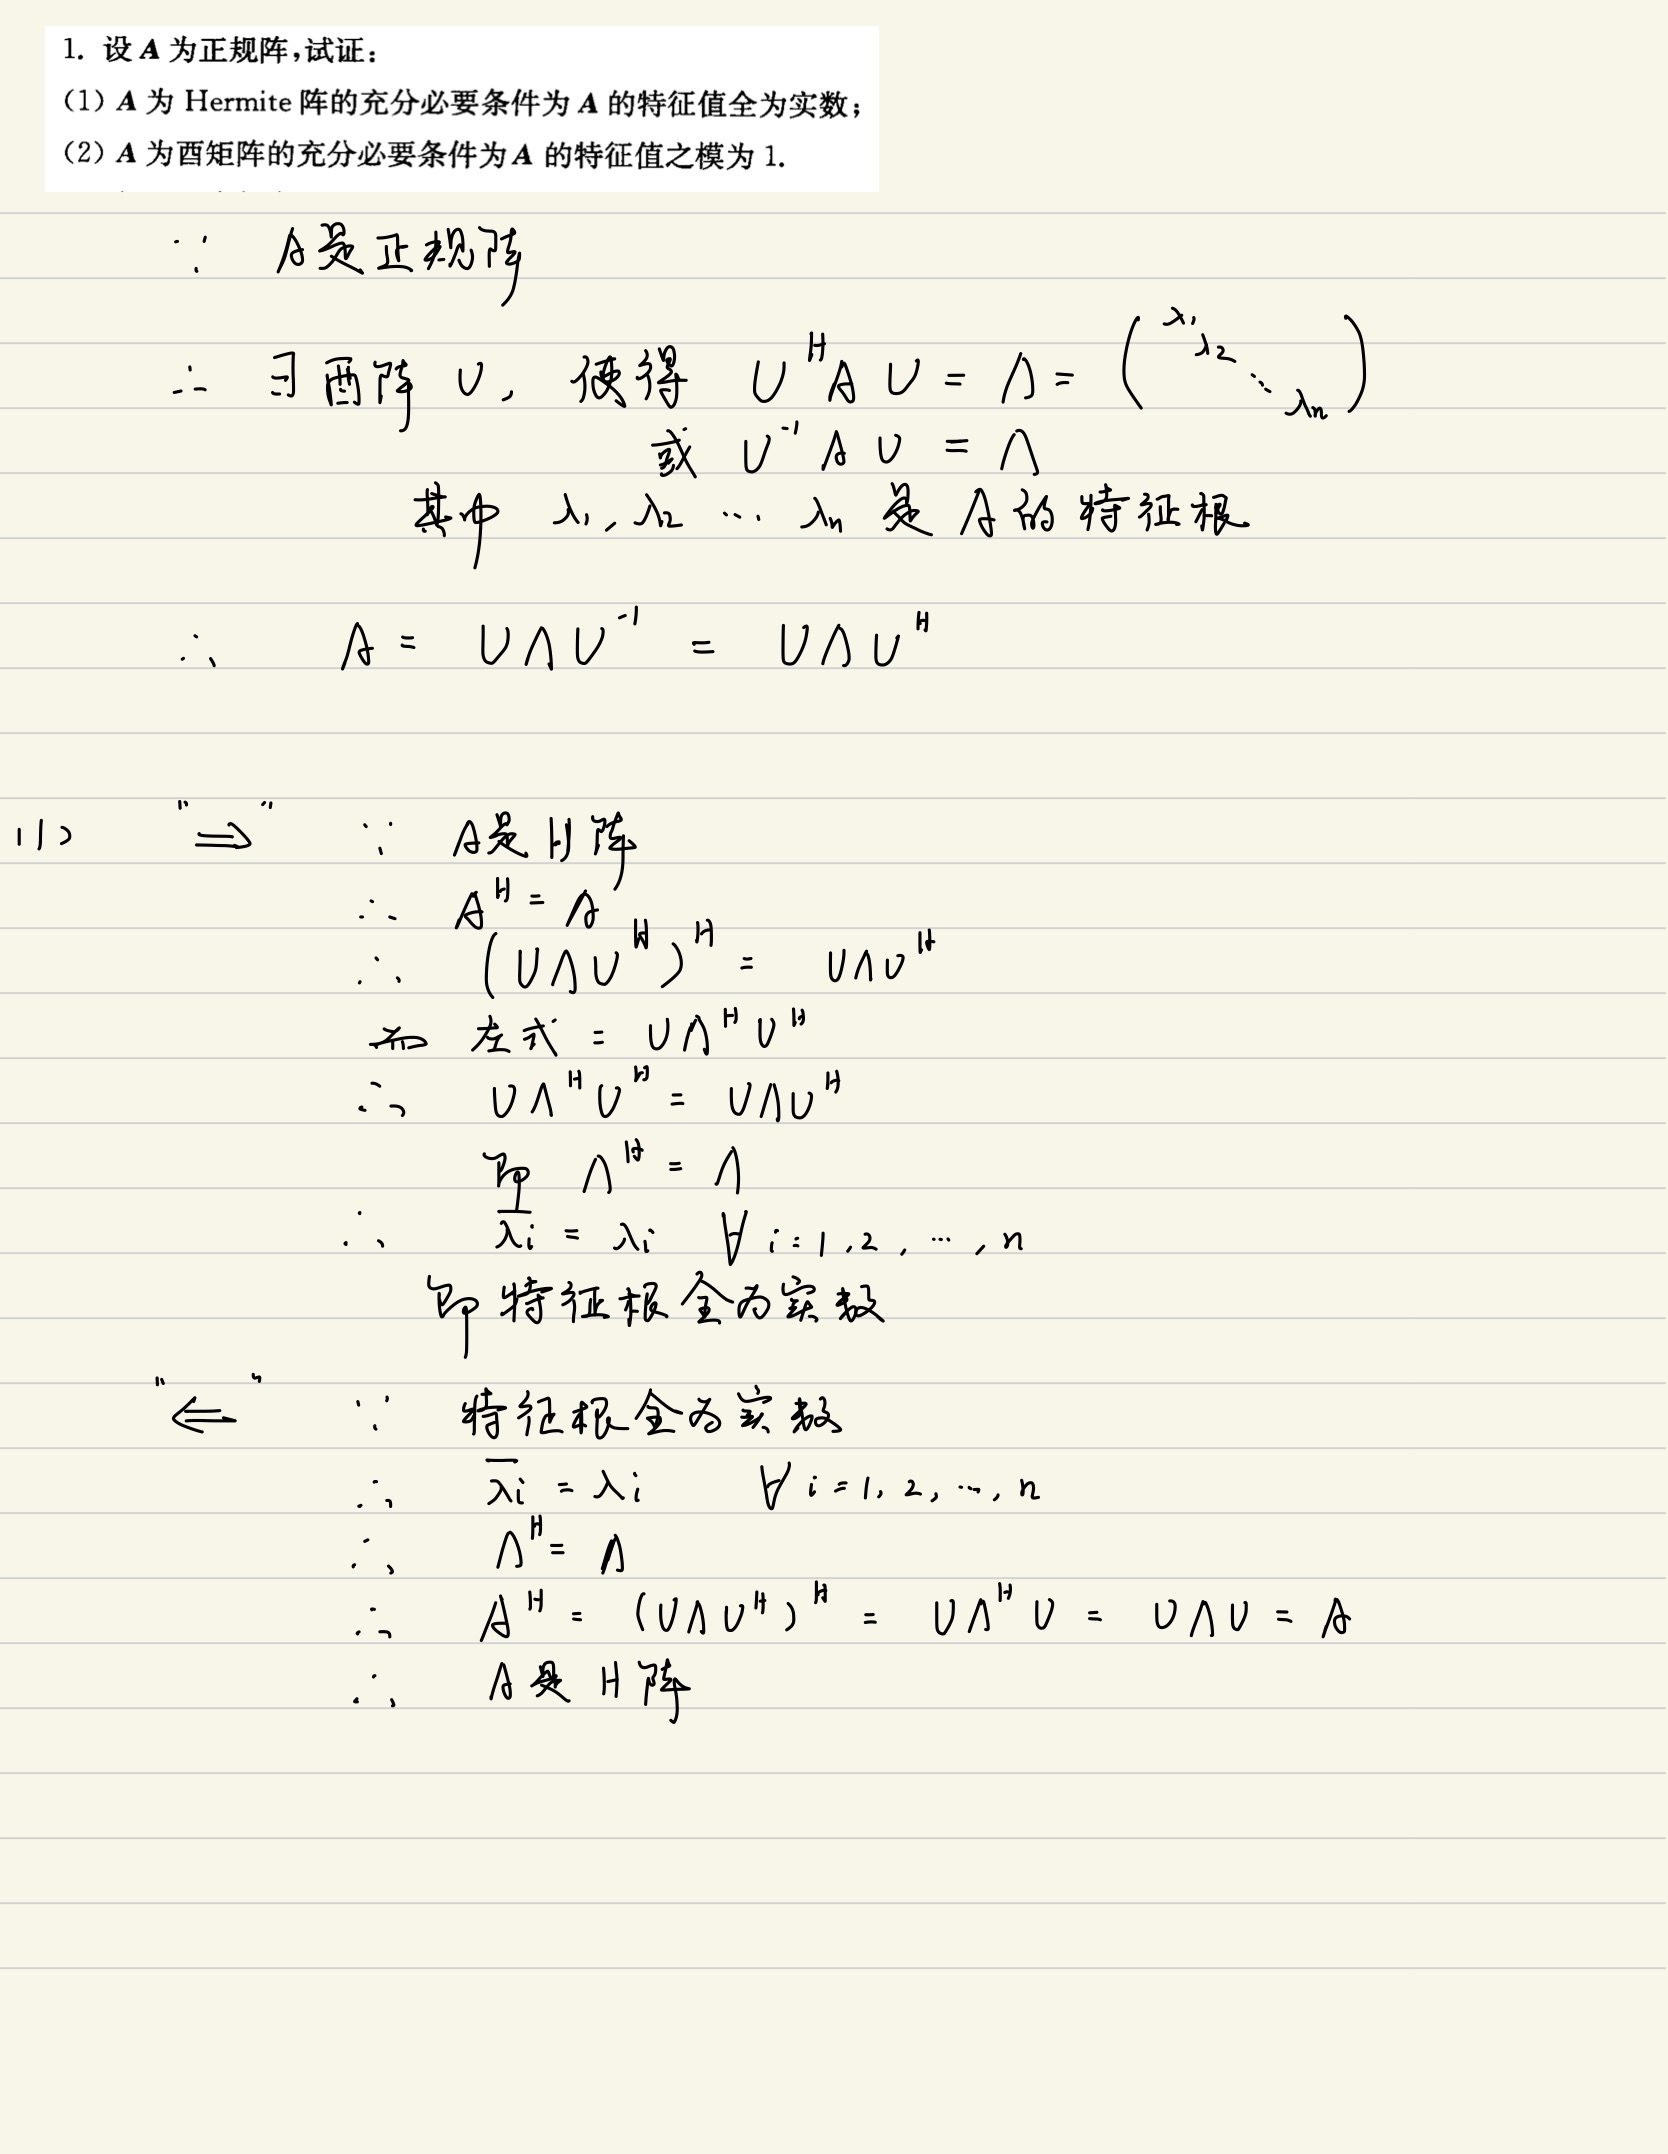 1. 设 A 为正规阵,试证:
(1) A 为 Hermite 阵的充分必要条件为 A 的特征值全为实数;
(2) A 为酉矩阵的充分必要条件为 A 的特征值之模为 1.
∵ A是正规阵
∴ ∃酉阵 U, 使得 U^H A U = Λ = (λ₁ λ₂ ⋱ λₙ)
或 U⁻¹ A U = Λ
其中 λ₁, λ₂ … λₙ 是 A的特征根
∴ A = UΛU⁻¹ = UΛU^H
(1) "⇒" ∵ A是H阵
∴ A^H = A
∴ (UΛU^H)^H = UΛU^H
而 左式 = UΛ^H U^H
∴ UΛ^H U^H = UΛU^H
即 Λ^H = Λ
∴ λ̄i = λi ∀ i = 1, 2, …, n
即特征根全为实数
"⇐" ∵ 特征根全为实数
∴ λ̄i = λi ∀ i = 1, 2, …, n
∴ Λ^H = Λ
∴ A^H = (UΛU^H)^H = UΛ^H U = UΛU = A
∴ A是 H 阵